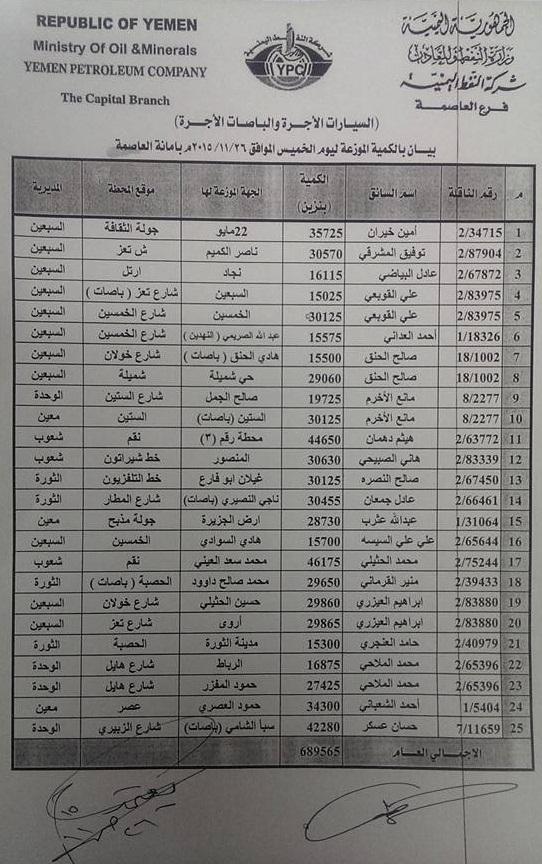 REPUBLIC OF YEMEN
Ministry Of Oil &Minerals
YEMEN PETROLEUM COMPANY
The Capital Branch
شركة النفط اليمنية
YPC
الجمهورية اليمنية
وزارة النفط والمعادن
شركة النفط اليمنية
فرع العاصمة
(السيارات الأجرة والباصات الأجرة)
بيان بالكمية الموزعة ليوم الخميس الموافق ٢٠١٥/١١/٢٦م بامانة العاصمة
م رقم الناقلة اسم السائق الكمية (بنزين) الجهة الموزعة لها موقع المحطة المديرية
1 2/34715 أمين خيران 35725 22مايو جولة الثقافة السبعين
2 2/87904 توفيق المشرقي 30570 ناصر الكميم ش تعز السبعين
3 2/67872 عادل البياضي 16115 نجاد ارتل السبعين
4 2/83975 علي القوبعي 15025 السبعين شارع تعز ( باصات ) السبعين
5 2/83975 علي القوبعي 30125 الخمسين شارع الخمسين السبعين
6 1/18326 أحمد العداني 15575 عبد الله الصريمي ( النهدين ) شارع الخمسين السبعين
7 18/1002 صالح الحنق 15500 هادي الحنق ( باصات ) شارع خولان السبعين
8 18/1002 صالح الحنق 29060 حي شميلة شميلة السبعين
9 8/2277 مانع الأخرم 19725 صالح الجمل شارع الستين الوحدة
10 8/2277 مانع الأخرم 30125 الستين (باصات) الستين معين
11 2/63772 هيثم دهمان 44650 محطة رقم (٣) نقم شعوب
12 2/83339 هاني الصبيحي 30630 المنصور خط شيراتون شعوب
13 2/67450 صالح النصره 30125 غيلان ابو فارع خط التلفزيون الثورة
14 2/66461 عادل جمعان 30455 ناجي النصيري (باصات) شارع المطار الثورة
15 1/31064 عبدالله عثرب 28730 ارض الجزيرة جولة مذبح معين
16 2/65644 علي علي السيسه 15700 هادي السوادي الخمسين السبعين
17 2/75244 محمد الحثيلي 46175 محمد سعد العيني نقم شعوب
18 2/39433 منير القرماني 29650 محمد صالح داوود الحصبة ( باصات ) الثورة
19 2/83880 ابراهيم العيزري 29860 حسين الحثيلي شارع خولان السبعين
20 2/83880 ابراهيم العيزري 29865 أروى شارع تعز السبعين
21 2/40979 حامد العنجري 15300 مدينة الثورة الحصبة الثورة
22 2/65396 محمد الملاحي 16875 الرباط شارع هايل الوحدة
23 2/65396 محمد الملاحي 27425 حمود المفزر شارع هايل الوحدة
24 1/5404 أحمد الشعباني 34300 حمود العصري عصر معين
25 7/11659 حسان عسكر 42280 سبأ الشامي (باصات) شارع الزبيري الوحدة
الإجمالي العام 689565